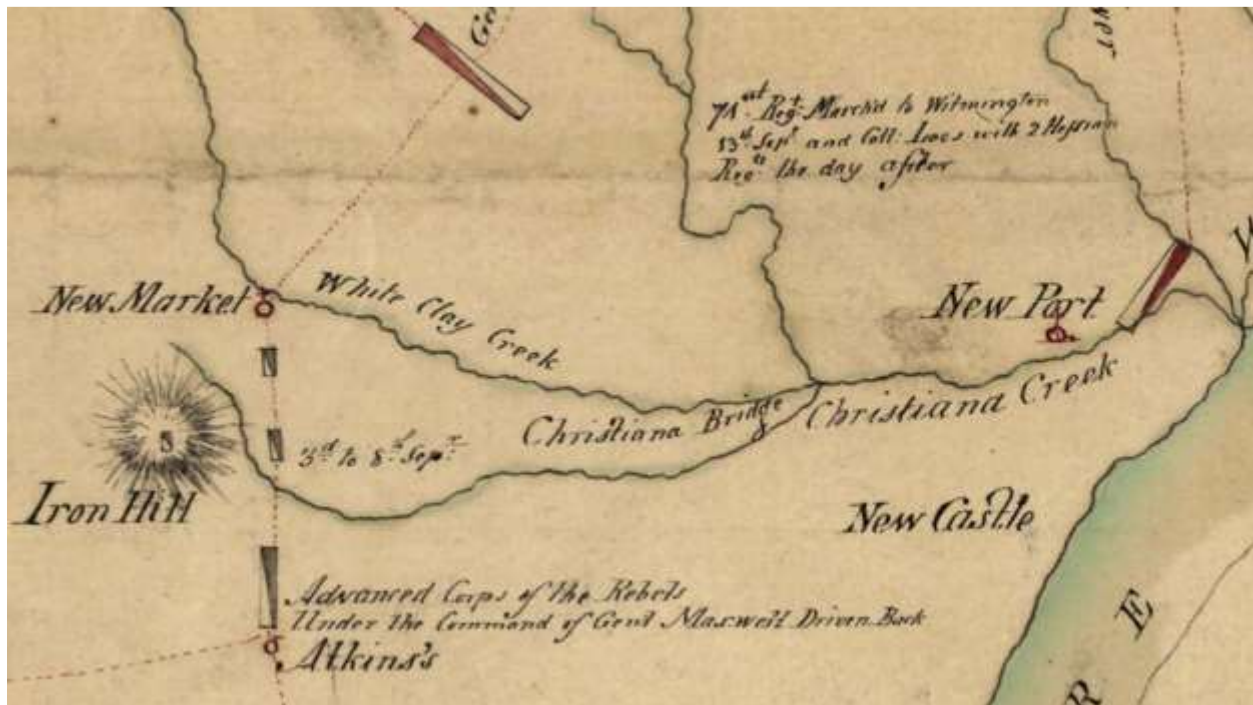 Gen
71st Regt. March'd to Wilmington
13th Sept. and Coll: Loos with 2 Hessian
Regts the day after
New Market
White Clay Creek
New Port
Christiana Bridge
Christiana Creek
3rd to 8th Sept.
5
Iron Hill
New Castle
Advanced Corps of the Rebels
Under the Command of Genl Maxwell Driven Back
Atkins's
R E